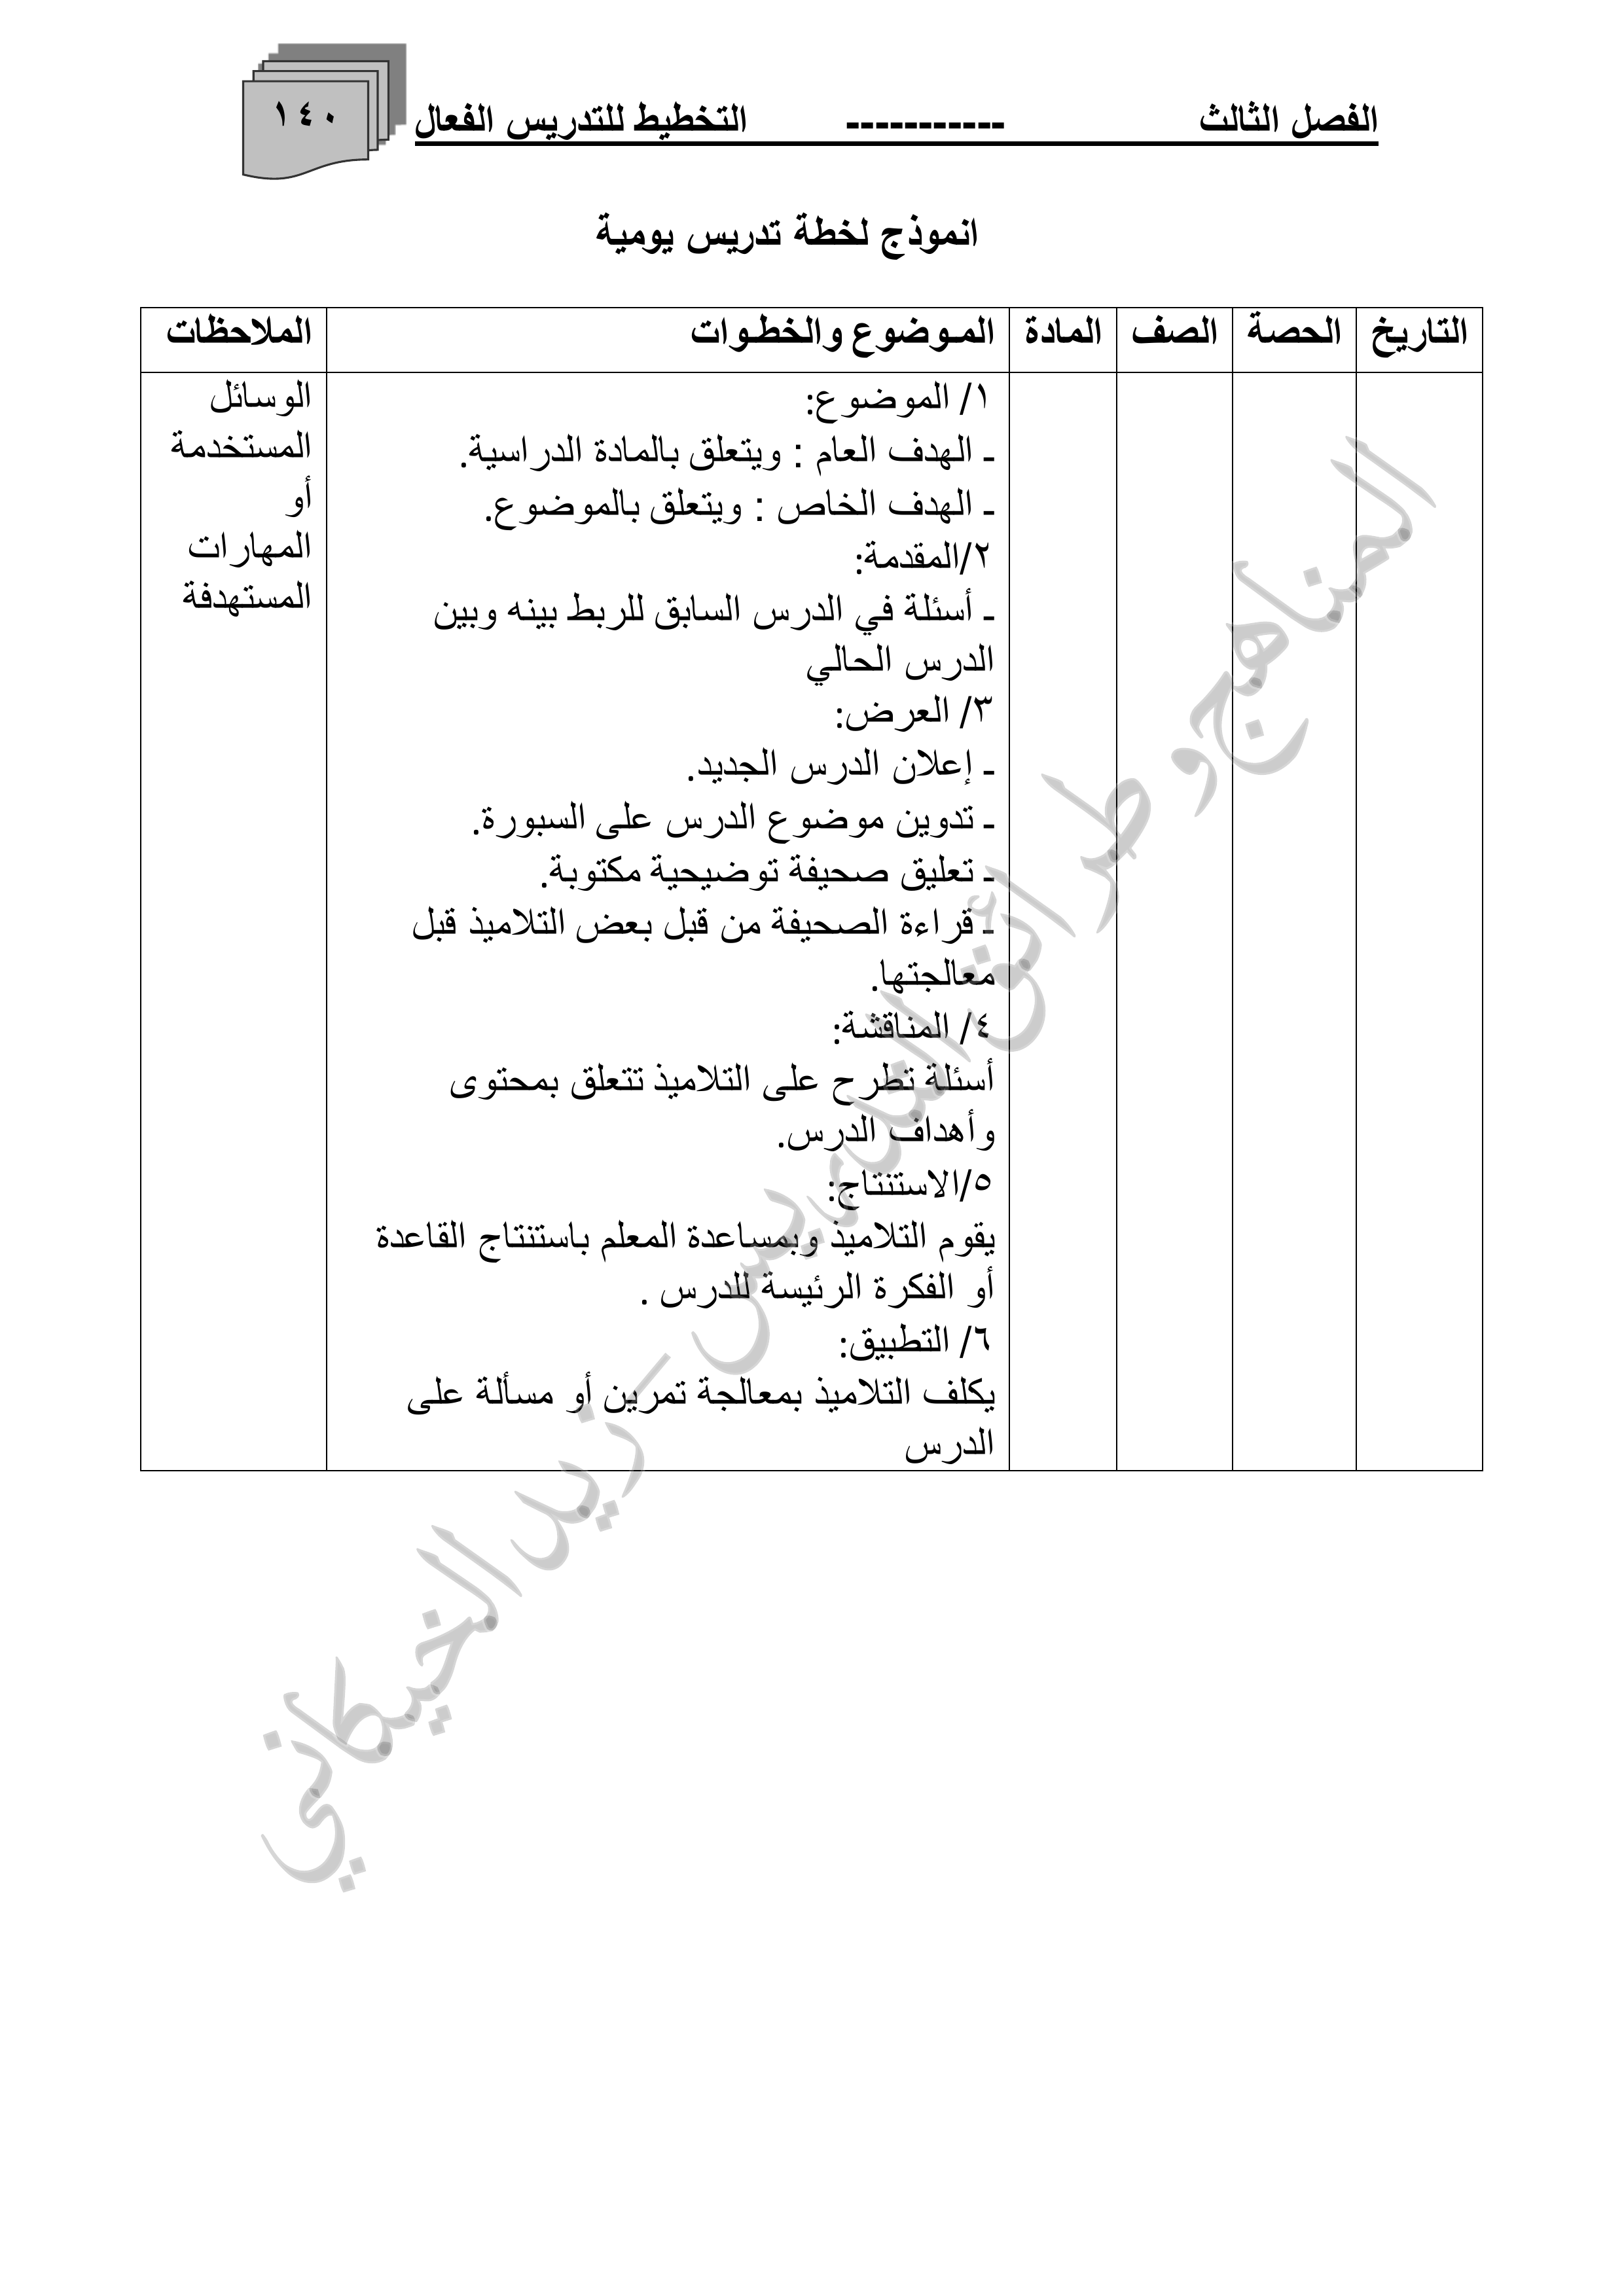 الفصل الثالث ----------- التخطيط للتدريس الفعال
١٤٠
انموذج لخطة تدريس يومية
التاريخ الحصة الصف المادة المـوضوع والخطـوات الملاحظات
١/ الموضوع:
ـ الهدف العام : ويتعلق بالمادة الدراسية.
ـ الهدف الخاص : ويتعلق بالموضوع.
٢/المقدمة:
ـ أسئلة في الدرس السابق للربط بينه وبين
الدرس الحالي
٣/ العرض:
ـ إعلان الدرس الجديد.
ـ تدوين موضوع الدرس على السبورة.
ـ تعليق صحيفة توضيحية مكتوبة.
ـ قراءة الصحيفة من قبل بعض التلاميذ قبل
معالجتها.
٤/ المناقشة:
أسئلة تطرح على التلاميذ تتعلق بمحتوى
وأهداف الدرس.
٥/الاستنتاج:
يقوم التلاميذ وبمساعدة المعلم باستنتاج القاعدة
أو الفكرة الرئيسة للدرس .
٦/ التطبيق:
يكلف التلاميذ بمعالجة تمرين أو مسألة على
الدرس
الوسائل
المستخدمة
أو
المهارات
المستهدفة
المناهج وطرائق التدريس - زيد الخيكاني